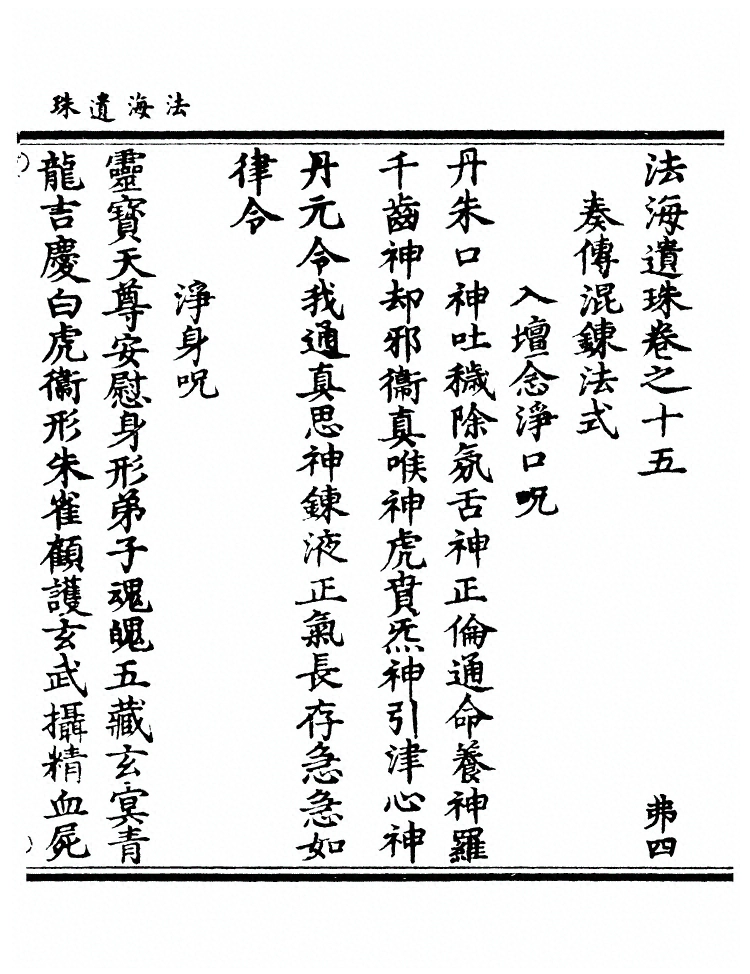 法海遺珠
法海遺珠卷之十五　弗四
奏傳混鍊法式
入壇念淨口呪
丹朱口神吐穢除氛舌神正倫通命養神羅
千齒神却邪衞真喉神虎賁炁神引津心神
丹元令我通真思神鍊液正氣長存急急如
律令
淨身呪
靈寶天尊安慰身形弟子魂魄五藏玄冥青
龍吉慶白虎衞形朱雀顧護玄武攝精血屍